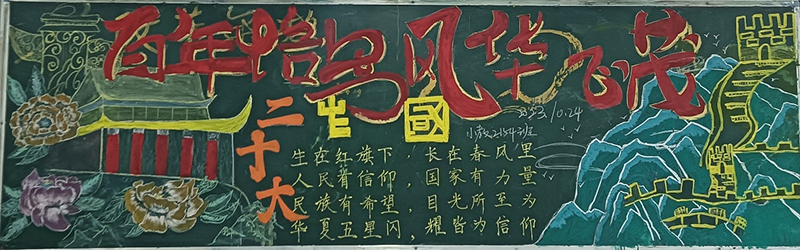 百年恰是风华正茂
二十大
国
10.24
小教2154班
生在红旗下，长在春风里
人民有信仰，国家有力量
民族有希望，目光所至为
华夏五星闪，耀皆为信仰